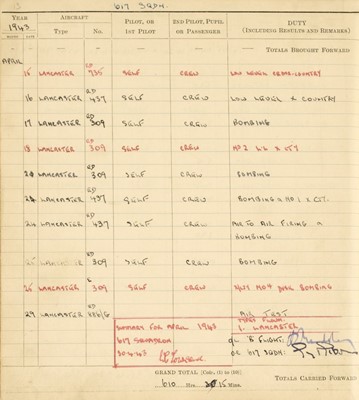 617 SQDN.
YEAR
1943
AIRCRAFT
PILOT, OR
1ST PILOT
2ND PILOT, PUPIL
OR PASSENGER
DUTY
(INCLUDING RESULTS AND REMARKS)
MONTH DATE
Type No.
TOTALS BROUGHT FORWARD
APRIL
15 LANCASTER ED SELF CREW LOW LEVEL CROSS-COUNTRY
16 LANCASTER ED 437 SELF CREW LOW LEVEL X COUNTRY
17 LANCASTER ED 309 SELF CREW BOMBING
18 LANCASTER ED 309 SELF CREW
LANCASTER ED 309 SELF CREW BOMBING
LANCASTER ED 437 SELF CREW BOMBING
24 LANCASTER ED 437 SELF CREW AIR TO AIR FIRING
BOMBING
ED 309 SELF CREW BOMBING
LANCASTER 309 SELF CREW BOMBING
29 LANCASTER AIR TEST
SUMMARY FOR APRIL 1943
617 SQUADRON
30-4-43
TYPES FLOWN
1. LANCASTER
"B" FLIGHT:
OC 617 SQDN:
GRAND TOTAL [Cols. (1) to (10)]
610 Hrs. 15 Mins.
TOTALS CARRIED FORWARD